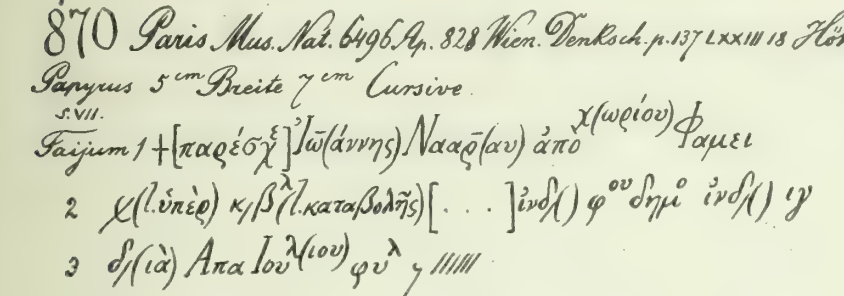 870 Paris Mus. Nat. 6496 Ap. 828 Wien. Denksch. p. 137 LXXIII 18
Papyrus 5 cm Breite 7 cm Cursive.
s. VII.
Faijum 1 +[παρέσχ ξ] Ἰω̄(άννης) Νααρ̄(αυ) ἀπὸ χ(ωρίου) Φαμει
2 χ(l. ὑπὲρ) κ/β λ(l. καταβολῆς) [. . . ] ἰνδ/() φ ου δημο ἰνδ/() ιγ
3 δ/(ιὰ) Απα Ιου λ(ιου) φυλ 7 //////